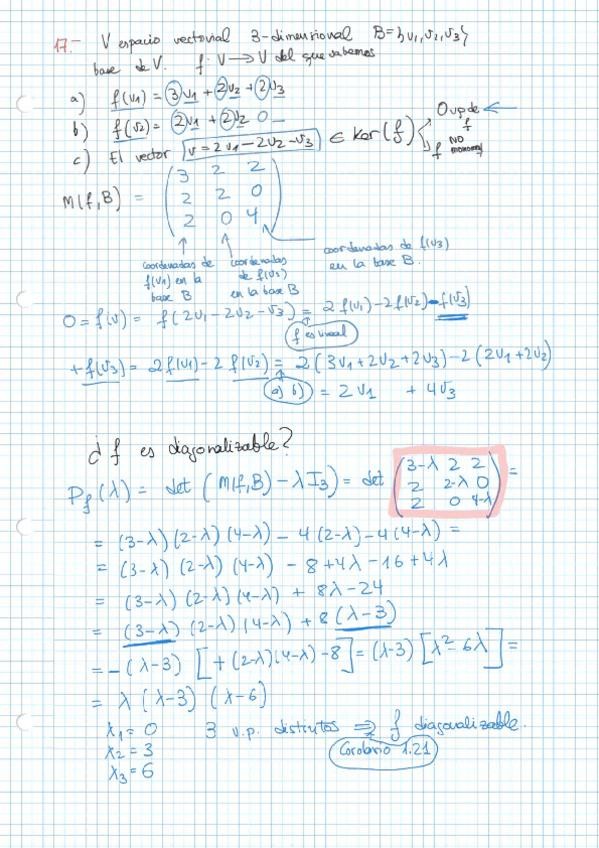 17.- V espacio vectorial 3-dimensional B={v₁,v₂,v₃}
base de V. f: V → V del que sabemos
a) f(v₁) = 3v₁ + 2v₂ + 2v₃
b) f(v₂) = 2v₁ + 2v₂ 0 _
c) El vector v = 2v₁ - 2v₂ - v₃ ∈ Ker(f)
0 vp de f ←
f NO monomorf
M(f,B) = ( 3 2 2
2 2 0
2 0 4 )
coordenadas de f(v₁) en la base B
coordenadas de f(v₂) en la base B
coordenadas de f(v₃) en la base B.
0 = f(v) = f(2v₁ - 2v₂ - v₃) = 2f(v₁) - 2f(v₂) - f(v₃)
f es lineal
+f(v₃) = 2f(v₁) - 2f(v₂) = 2(3v₁ + 2v₂ + 2v₃) - 2(2v₁ + 2v₂)
a) b) = 2v₁ + 4v₃
¿f es diagonalizable?
P_f(λ) = det (M(f,B) - λI₃) = det ( 3-λ 2 2
2 2-λ 0
2 0 4-λ ) =
= (3-λ)(2-λ)(4-λ) - 4(2-λ) - 4(4-λ) =
= (3-λ)(2-λ)(4-λ) - 8 + 4λ - 16 + 4λ
= (3-λ)(2-λ)(4-λ) + 8λ - 24
= (3-λ)(2-λ)(4-λ) + 8(λ-3)
= -(λ-3)[+(2-λ)(4-λ) - 8] = (λ-3)[λ² - 6λ] =
= λ(λ-3)(λ-6)
λ₁ = 0 3 v.p. distintos ⇒ f diagonalizable.
λ₂ = 3 Corolario 1.21
λ₃ = 6